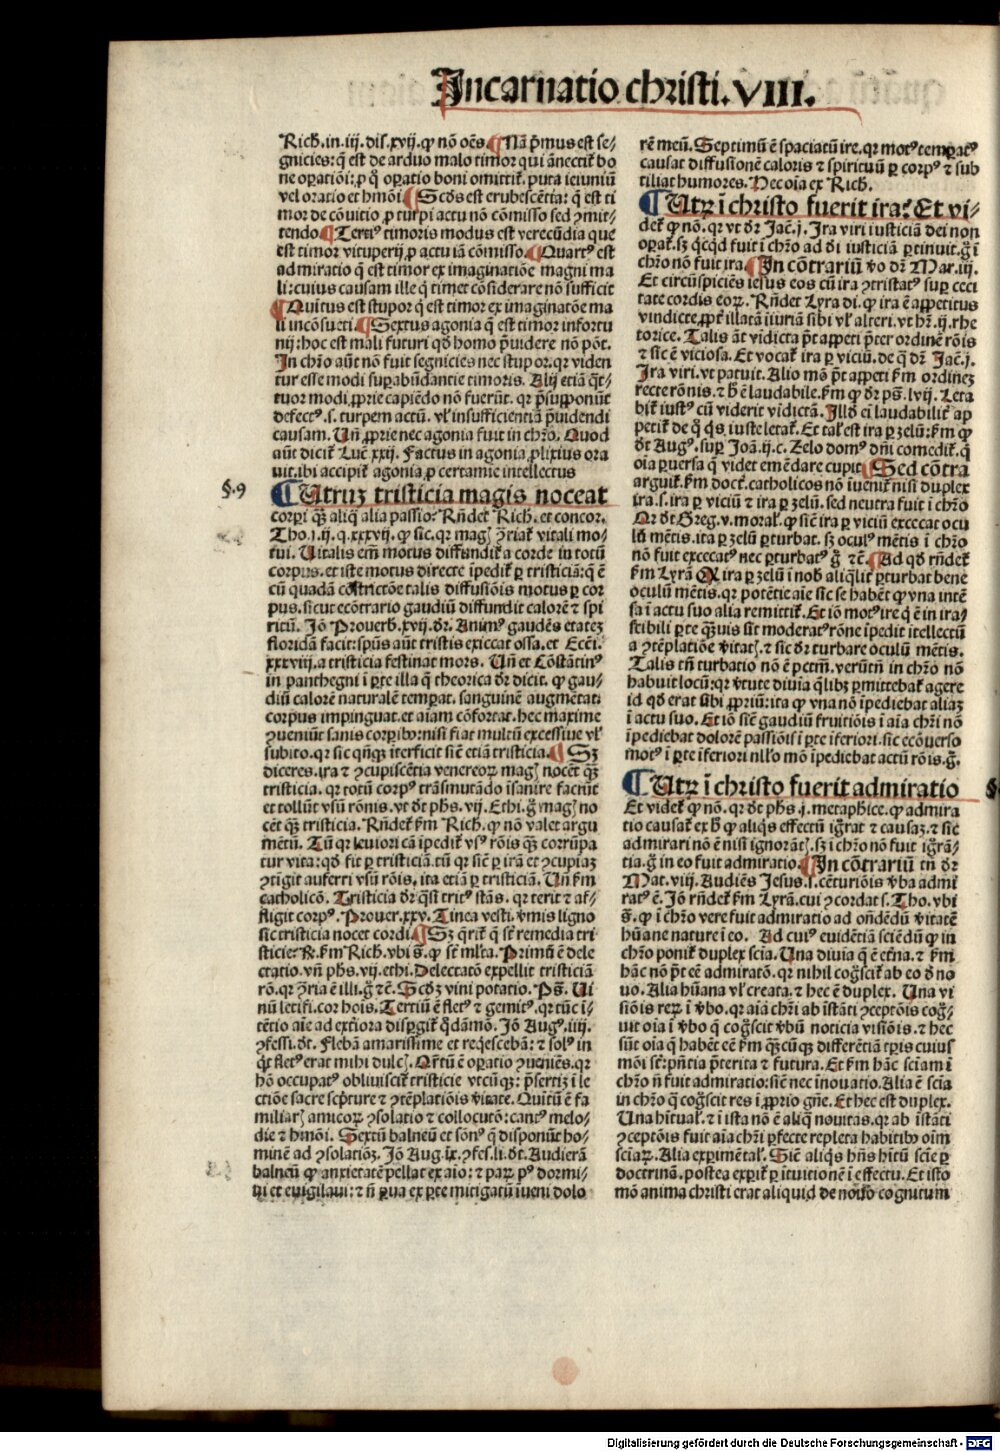 Incarnatio christi. VIII.
Rich. in. iij. dis. xvij. ꝙ nõ oẽs. Nã p̃mus est se-
gnicies: q̃ est de arduo malo timor qui ãnectit᷑ bo
ne oꝑatiõi: ꝓ q̃ oꝑatio boni omittit᷑. puta ieiuniũ
vel oratio et hmõi. Scḋs est erubescẽtia: q̃ est ti
mor de cõuitio ꝓ turpi actu nõ cõmisso sed ꝯmit-
tendo. Terti᷒ timoris modus est verecũdia que
est timor vituperij ꝓ actu iã cõmisso. Quart᷒ est
admiratio q̃ est timor ex imaginatiõe magni ma
li: cuius causam ille q̃ timet cõsiderare nõ sufficit
Quĩtus est stupor q̃ est timor ex imaginatõe ma
li incõsueti. Sextus agonia q̃ est timor infortu
nij: hoc est mali futuri qḋ homo p̃uidere nõ põt.
In chr̃o aũt nõ fuit segnicies nec stupor. qr viden
tur esse modi suꝑabũdantie timoris. Alij etiã q̃t-
tuor modi ꝓprie capiẽdo nõ fuerũt. qr p̃supponũt
defect᷒. s. turpem actũ. vl̃ insufficientiã p̃uidendi
causam. Uñ ꝓprie nec agonia fuit in chr̃o. Quod
aũt dicit᷑ Luẽ. xxij. Factus in agonia ꝓlixius ora
uit. ibi accipit᷑ agonia ꝓ certamie intellectus
§. 9
Utruꝫ tristicia magis noceat
corpĩ q̃ꝫ aliq̃ alia passio: Rñdet᷑ Rich. et concor.
Tho. j. ij. q. xxxvij. ꝙ sic. qr magꝭ ꝯ̃riat᷑ vitali mo-
tui. Uitalis em̃ motus diffundit᷑ a corde in totũ
corpus. et iste motus directe ĩpedit᷑ ꝑ tristiciã: q̃ ẽ
cũ quadã cõstrictõe talis diffusiõis motus ꝑ cor
pus. sicut ecõtrario gaudiũ diffundit calorẽ ⁊ spi
ritũ. Jõ Prouerb. xvij. dr̃. Anim᷒ gaudẽs etateꝫ
floridã facit: spũs aũt tristis exiccat ossa. et Ecči.
xxxviij. a tristicia festinat mors. Uñ et Cõstãtin᷒
in panthegni ĩ ꝑte illa q̃ theorica dr̃ dicit. ꝙ gau-
diũ calorẽ naturalẽ temꝑat. sanguinẽ augmẽtat.
corpus impinguat. et aĩam cõfortat. hec maxime
ꝯueniũt sanis corꝑibꝰ: nisi fiat multũ excessiue vl̃
subito. qr sic qñqꝫ ĩterficit siẽ etiã tristicia. Sꝫ
diceres. ira ⁊ ꝯcupiscẽtia venereoꝝ magꝭ nocẽt q̃ꝫ
tristicia. qr totũ corp᷒ trãsmutãdo ĩsanire faciũt
et tollũt vsũ rõnis. vt ḋt ph̃s. vij. Ethi. g̃ magꝭ no
cẽt q̃ꝫ tristicia. Rñdet᷑ km̃ Rich. ꝙ nõ valet argu
mẽtũ. Tũ qr leuiori cã ĩpedit᷑ vs᷒ rõis q̃ꝫ corrũpa
tur vita: qḋ fit ꝑ tristiciã. tũ qr siẽ ꝑ irã et ꝯcupĩaꝫ
ꝯtĩgit auferri vsũ rõis. ita etiã ꝑ tristiciã. Uñ km̃
catholicõ. Tristicia dr̃ q̃si trit᷒ stãs. qr terit ⁊ af-
fligit corp᷒. Prouer. xxv. Tinea vesti. ṽmis ligno
sic tristicia nocet cordi. Sꝫ q̃rit᷑ q̃ sẽ remedia tri
sticie: R. km̃ Rich. vbi s̃. ꝙ sẽ ml̃ta. Primũ ẽ dele
ctatio. vñ ph̃s. vij. ethi. Delectatõ expellit tristiciã
rõ. qr ꝯ̃ria ẽ illi. g̃ ⁊ẽ. Scḋꝫ vini potatio. Ps̃. Ui
nũ letifi. cor hois. Tertiũ ẽ flet᷒ ⁊ gemit᷒. qr tũc ĩ-
tẽtio aĩe ad ext̃iora disꝑgit᷑ q̃dãmõ. Jõ Aug᷒. iiij.
ꝯfessi. ḋt. Flebã amarissime et req̃escebã: ⁊ sol᷒ in
q̃t flet᷒ erat mihi dulcꝭ. Q̃rtũ ẽ oꝑatio ꝯueniẽs. qr
hõ occupat᷒ obliuiscit᷑ tristicie vtcũqꝫ: p̃sertiꝫ ĩ le
ctiõe sacre scp̃ture ⁊ ꝯtẽplatiõis ṽitate. Quĩtũ ẽ fa
miliarꝭ amicoꝝ ꝯsolatio ⁊ collocutõ: cant᷒ melo-
die ⁊ hmõi. Sextũ balneũ et sõn᷒ q̃ disponũt ho-
minẽ ad ꝯsolatiõꝫ. Jõ Aug. ix. ꝯfes. li. ḋt. Audierã
balneũ ꝙ anxietatẽ pellat ex aĩo: ⁊ paꝝ p᷒ dormi-
ui et euigilaui: ⁊ ñ ꝑua ex ꝑte mitigatũ ĩueni dolo
rẽ meũ. Septimũ ẽ spaciatũ ire. qr mot᷒ temꝑat᷒
causat diffusionẽ caloris ⁊ spirituũ ꝑ corp᷒ ⁊ sub
tiliat humores. Hec oĩa ex Rich.
Utꝝ ĩ christo fuerit ira: Et vi-
det᷑ ꝙ nõ. qr vt dr̃ Jač. j. Ira viri iusticiã dei non
oꝑat᷑. sꝫ qcqḋ fuit ĩ chr̃o ad dĩ iusticiã ꝑtinuit. g̃ ĩ
chr̃o nõ fuit ira. In cõtrariũ ṽo dr̃ Mar. iij.
Et circũspiciẽs iesus eos cũ ira ꝯtristat᷒ suꝑ ceci
tate cordis eoꝝ. Rñdet Lyra dĩ. ꝙ ira ẽ appetitus
vindicte ꝓpt̃ illatã iniuriã sibi vl̃ alteri. vt hr̃. ij. rhe
torice. Talis ãt vidicta p̃t appeti p̃ter ordinẽ rõis
⁊ sic ẽ viciosa. Et vocat᷑ ira ꝑ viciũ. de q̃ dr̃ Jač. j.
Ira viri. vt patuit. Alio mõ p̃t appeti km̃ ordineꝫ
recte rõnis. ⁊ h̃ ẽ laudabile. km̃ ꝙ dr̃ ps̃. lvij. Leta
bit᷑ iust᷒ cũ viderit vidictã. Illḋ em̃ laudabilit̃ ap
petit᷑ de q̃ q̃s iuste letat᷑. Et tal̃ est ira ꝑ zelũ: km̃ ꝙ
ḋt Aug᷒. suꝑ Joã. ij. c. Zelo dom᷒ dñi comedit᷑. q̃
oĩa ꝑuersa q̃ videt emẽdare cupit. Sed cõtra
arguit᷑. km̃ doct̃. catholicos nõ ĩuenit᷑ nisi duplex
ira. s. ira ꝑ viciũ ⁊ ira ꝑ zelũ. sed neutra fuit ĩ chr̃o
Qr ḋt Greg. v. moral̃. ꝙ siẽ ira ꝑ viciũ excecat ocu
lũ mẽtis. ita ꝑ zelũ ꝑturbat. sꝫ ocul᷒ mẽtis ĩ chr̃o
nõ fuit excecat᷒ nec ꝑturbat᷒ g̃ ⁊ẽ. Ad qḋ rñdet᷑
km̃ Lyrã Q ira ꝑ zelũ ĩ nob̃ aliq̃lit̃ ꝑturbat bene
oculũ mẽtis. qr potẽtie aĩe sic se habẽt ꝙ vna intẽ
sa ĩ actu suo alia remittit᷑. Et iõ mot᷒ ire q̃ ẽ in ira-
scibili ꝑte q̃ꝫuis sit moderat᷒ rõne ĩpedit itellectũ
a ꝯtẽplatiõe ṽitatꝭ. ⁊ sic dr̃ turbare oculũ mẽtis.
Talis tñ turbatio nõ ẽ pctm̃. verũtñ in chr̃o nõ
habuit locũ: qr ṽtute diuĩa q̃libꝫ ꝑmittebat᷑ agere
id qḋ erat sibi ꝓpriũ: ita ꝙ vna nõ ĩpediebat aliaꝫ
ĩ actu suo. Et iõ siẽ gaudiũ fruitiõis ĩ aĩa chr̃i nõ
ĩpediebat dolorẽ passiõis ĩ ꝑte ĩferiori. sic ecõuerso
mot᷒ ĩ ꝑte ĩferiori nl̃lo mõ ĩpediebat actũ rõis. g̃.
Utꝝ ĩ christo fuerit admiratio
Et videt᷑ ꝙ nõ. qr ḋt ph̃s. j. metaphice. ꝙ admira
tio causat᷑ ex h̃ ꝙ aliq̃s effectũ ig̃rat ⁊ causaꝫ. ⁊ siẽ
admirari nõ ẽ nisi ignorãtꝭ. sꝫ ĩ chr̃o nõ fuit ig̃rã-
tia. g̃ in eo fuit admiratio. In cõtrariũ tñ dr̃
Mat. viij. Audiẽs Jesus. s. cẽturiõis ṽba admi
rat᷒ ẽ. Jõ rñdet᷑ km̃ Lyrã. cui ꝯcordat s. Tho. vbi
s̃. ꝙ ĩ chr̃o vere fuit admiratio ad oñdẽdũ ṽitatẽ
hũane nature ĩ eo. Ad cui᷒ euidẽtiã sciẽdũ ꝙ in
chr̃o ponit᷑ duplex scĩa. Una diuĩa q̃ ẽ etñna. ⁊ km̃
hãc nõ p̃t eẽ admiratõ. qr nihil cog̃scit᷑ ab eo ḋ no
uo. Alia hũana vl̃ creata. ⁊ hec ẽ duplex. Una vi
siõis reꝝ ĩ ṽbo. qr aĩa chr̃i ab ĩstãti ꝯceptõis cog̃-
uit oĩa ĩ ṽbo q̃ cog̃scit ṽbũ noticia visiõis. ⁊ hec
sũt oĩa q̃ habẽt eẽ km̃ q̃ꝫcũqꝫ differẽtiã tꝑis cuius
mõi sẽ: pñtia p̃terita ⁊ futura. Et km̃ hãc sciam ĩ
chr̃o ñ fuit admiratio: siẽ nec ĩnouatio. Alia ẽ scĩa
in chr̃o q̃ cog̃scit res ĩ ꝓprio gñe. Et hec est duplex.
Una hĩtual̃. ⁊ ĩ ista nõ ẽ aliq̃ nouitas. qr ab ĩstãti
ꝯceptõis fuit aĩa chr̃i ꝑfecte repleta habitibꝰ oĩm
sciaꝝ. Alia exꝑimẽtal̃. Siẽ aliq̃s hñs hĩtũ scĩe ꝑ
doctrinã. postea exꝑit᷑ ꝑ ĩtuitionẽ ĩ effectu. Et isto
mõ anima christi erat aliquid de nouo cognitum
Digitalisierung gefördert durch die Deutsche Forschungsgemeinschaft - DFG